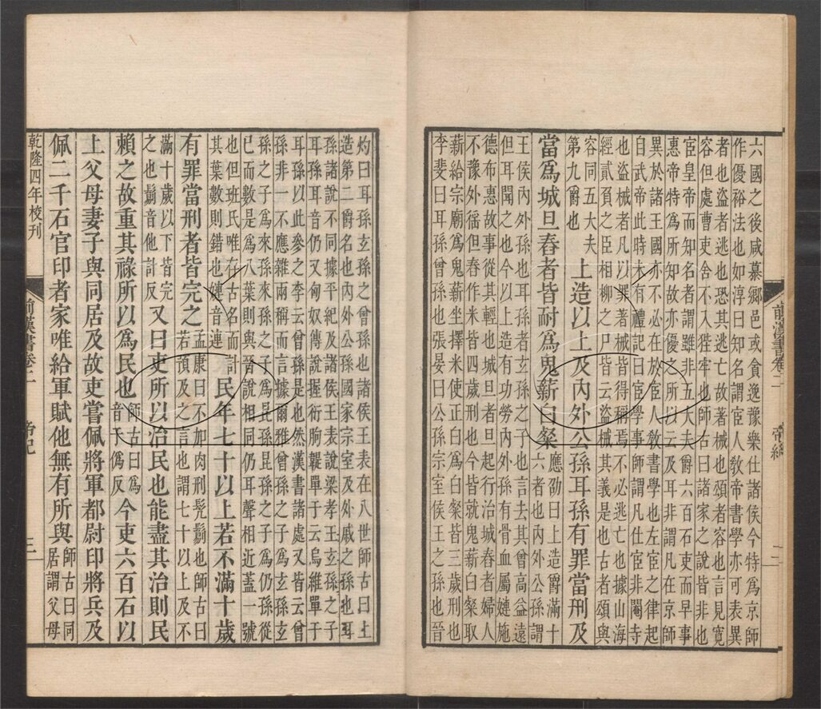 六國之後咸慕鄉邑或食逸豫樂仕諸侯今特為京師
作優裕法也如淳曰知名謂宦人敎帝書學亦可表異
者也盜者逃也恐其逃亡故著械也頌者容也言見寬
容但處曹吏舍不入狴牢也師古曰諸家之說皆非也
宦皇帝而知名者謂雖非五大夫爵六百石吏而早事
惠帝特為所知故亦優之所以云及耳非謂凡在京師
異於諸王國亦不必在於宦人敎書學也左宦之律起
自武帝此時未有禮記曰宦學事師謂凡仕宦非閹寺
也盜械者凡以罪著械皆得稱焉不必逃亡也據山海
經貳負之臣相柳之尸皆云盜械其義是也古者頌與
容同五大夫
第九爵也
上造以上及內外公孫耳孫有罪當刑及
當爲城旦舂者皆耐爲鬼薪白粲
應劭曰上造爵滿十
六者也內外公孫謂
王侯內外孫也耳孫者玄孫之子也言去其曾高益遠
但耳聞之也今以上造有功勞內外孫有骨血屬㜕施
德布惠故事從其輕也城旦者旦起行治城舂者婦人
不豫外徭但舂作米皆四歲刑也今皆就鬼薪白粲取
薪給宗廟爲鬼薪坐擇米使正白爲白粲皆三歲刑也
李斐曰耳孫曾孫也張晏曰公孫宗室侯王之孫也晉
前漢書卷二
帝紀
二
灼曰耳孫玄孫之曾孫也諸侯王表在八世師古曰上
造第二爵名也內外公孫國家宗室及外戚之孫也耳
孫諸說不同據平紀及諸侯王表說梁孝王玄孫之子
耳孫耳音仍又匈奴傳說握衍朐鞮單于云烏維單于
耳孫以此參之李云曾孫是也然漢書諸處又皆云曾
孫非一不應雜兩稱而言據爾雅曾孫之子爲玄孫玄
孫之子爲來孫來孫之子爲昆孫昆孫之子爲仍孫從
已而數是爲八葉則與晉說相同仍耳聲相近蓋一號
也但班氏唯存古名而計
其葉數則錯也音連
民年七十以上若不滿十歲
有罪當刑者皆完之
孟康曰不加肉刑髡鬄也師古曰
若預及之言也謂七十以上及不
滿十歲以下皆完
之也鬄音他計反
又曰吏所以治民也能盡其治則民
賴之故重其祿所以爲民也
師古曰爲
音于僞反
今吏六百石以
上父母妻子與同居及故吏嘗佩將軍都尉印將兵及
佩二千石官印者家唯給軍賦他無有所與
師古曰同
居謂父母
乾隆四年校刊
前漢書卷二
帝紀
三